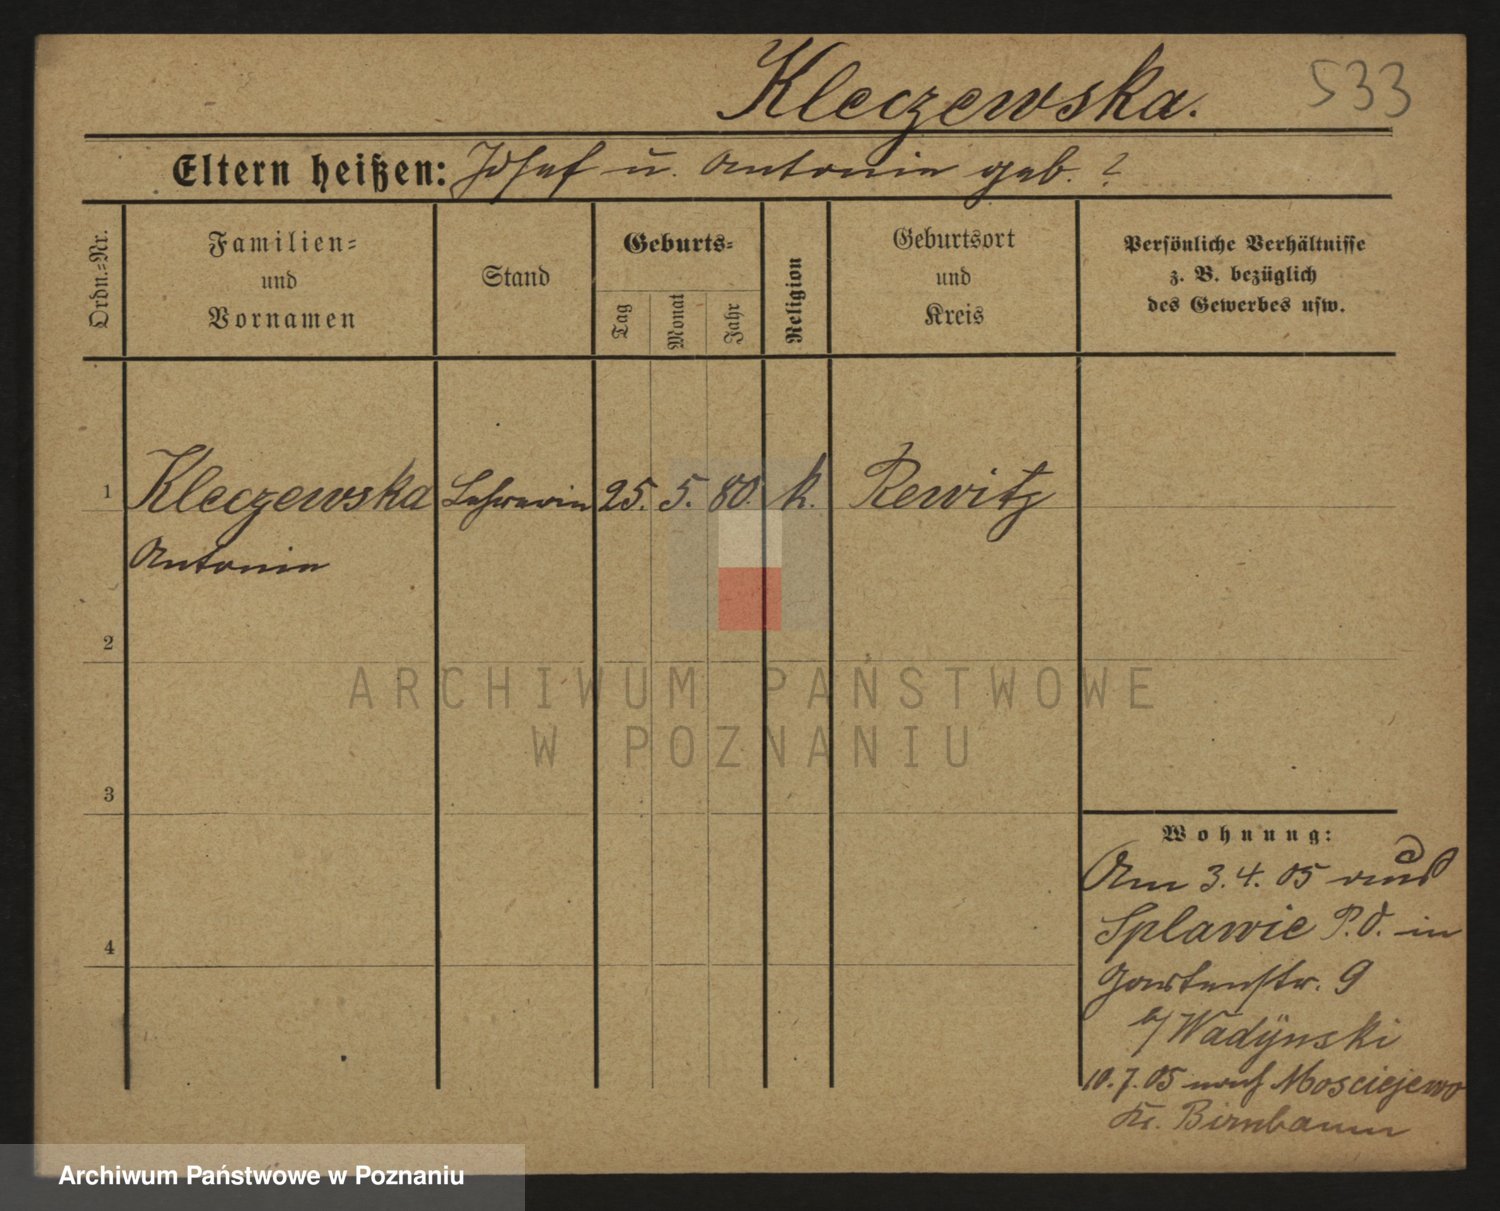 533
Kleczewska.
Eltern heißen: Josef u. Antonie geb. ?
Ordn.=Nr.
Familien=
und
Vornamen
Stand
Geburts=
Tag
Monat
Jahr
Religion
Geburtsort
und
Kreis
Persönliche Verhältnisse
z. B. bezüglich
des Gewerbes usw.
1 Kleczewska Lehrerin 25. 5. 80. k. Rewitz
Antonie
2
3
4
Wohnung:
Am 3.4.05 aus
Splawie P.O. in
Gartenstr. 9
b/ Wadÿnski
10.7.05 nach Mosciejewo
Kr. Birnbaum
ARCHIWUM PAŃSTWOWE
W POZNANIU
Archiwum Państwowe w Poznaniu